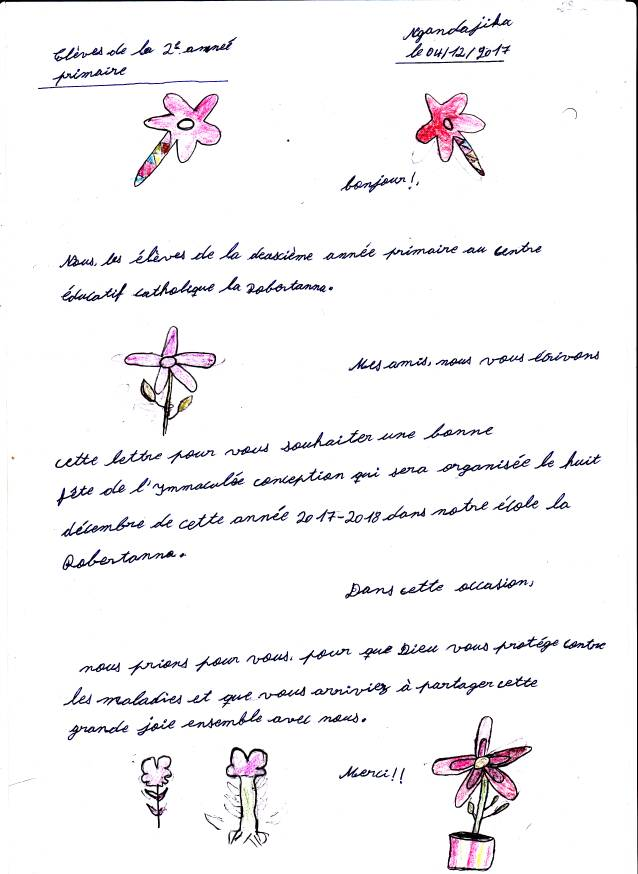 Elèves de la 2e année
primaire
Ngandajika
le 04/12/2017
bonjour!,
Nous, les élèves de la deuxième année primaire au centre
éducatif catholique la Robertanna.
Mes amis, nous vous écrivons
cette lettre pour vous souhaiter une bonne
fête de l'ymmaculée conception qui sera organisée le huit
décembre de cette année 2017-2018 dans notre école la
Robertanna.
Dans cette occasion,
nous prions pour vous, pour que Dieu vous protége contre
les maladies et que vous arriviez à partager cette
grande joie ensemble avec nous.
Merci!!